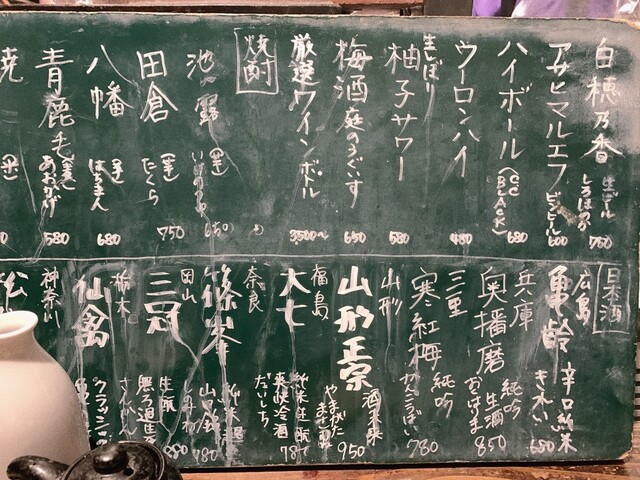 白穂乃香 生ビール しろほのか 750
アサヒマルエフ ビンビール 600
ハイボール (CC BLACK) 680
ウーロンハイ 480
生しぼり 柚子サワー 580
梅酒 庭のうぐいす 650
厳選ワイン ボトル 3500〜
焼酎
池の露 (芋) 650
田倉 (芋) たくら 750
八幡 (芋) はちまん 680
青鹿毛 (麦) あおかげ 580
(米)
日本酒
広島 亀齢 辛口純米 きれい 650
兵庫 奥播磨 純吟 生酒 おくはりま 850
三重 寒紅梅 純吟 かんこうばい 780
山形 山形正宗 酒未来 やまがたまさむね 950
福島 大七 純米生酛 爽快冷酒 だいしち
奈良 篠峯 純米
岡山 三冠 生酛 無ろ過生 さんかん
栃木 仙禽 クラシック
神奈川 松